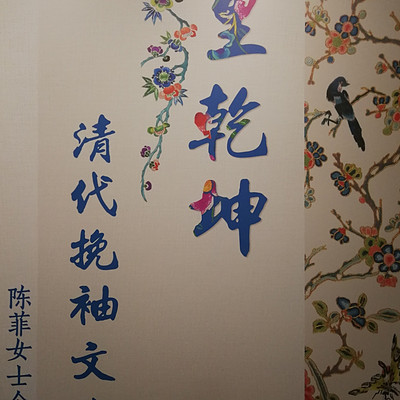 乾坤
清代挽袖文
陈菲女士